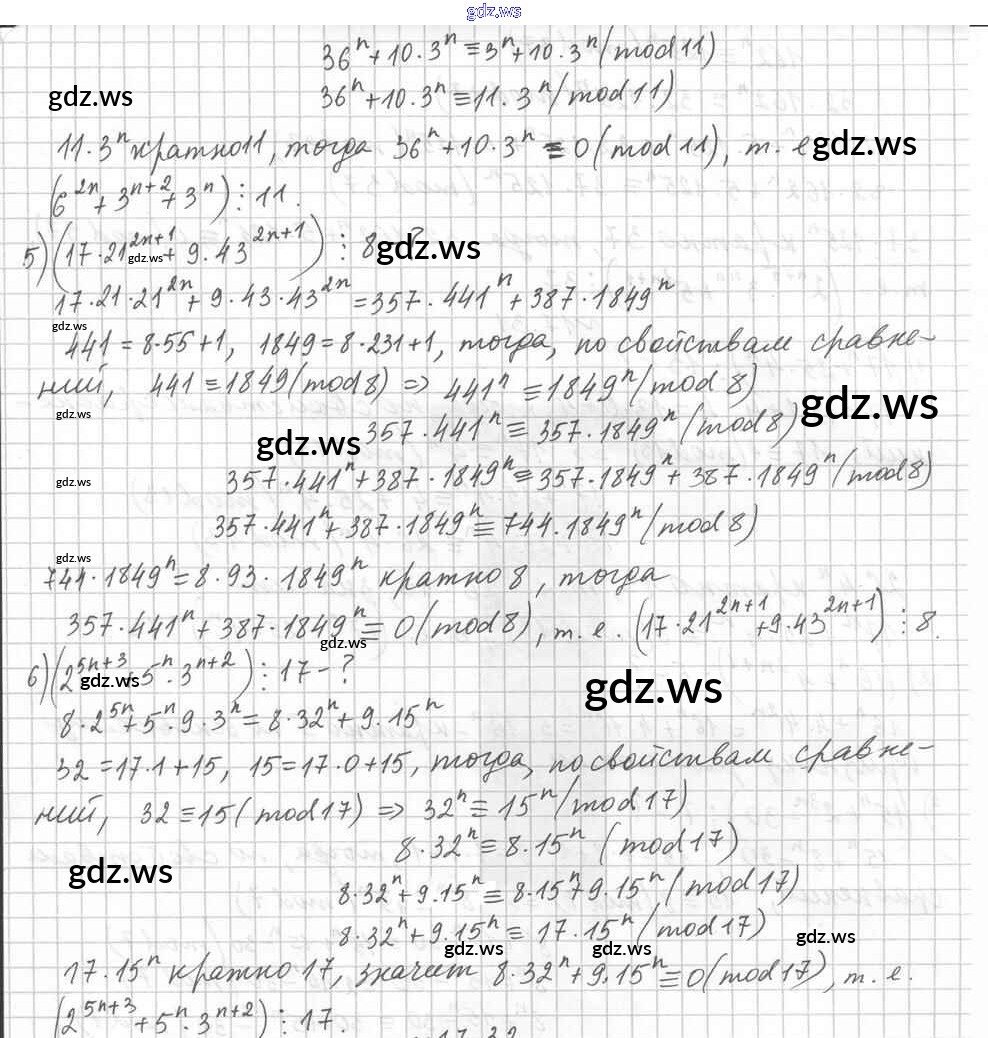 gdz.ws
36ⁿ + 10·3ⁿ ≡ 3ⁿ + 10·3ⁿ (mod 11)
gdz.ws
36ⁿ + 10·3ⁿ ≡ 11·3ⁿ (mod 11)
11·3ⁿ кратно 11, тогда 36ⁿ + 10·3ⁿ ≡ 0 (mod 11), т. е gdz.ws
(6²ⁿ + 3ⁿ⁺² + 3ⁿ) ⋮ 11.
5) (17·21²ⁿ⁺¹ + 9·43²ⁿ⁺¹) ⋮ 8 - ?
gdz.ws gdz.ws
17·21·21²ⁿ + 9·43·43²ⁿ = 357·441ⁿ + 387·1849ⁿ
gdz.ws
441 = 8·55+1, 1849 = 8·231+1, тогда, по свойствам сравне-
ний, 441 ≡ 1849 (mod 8) => 441ⁿ ≡ 1849ⁿ (mod 8)
gdz.ws gdz.ws
gdz.ws 357·441ⁿ ≡ 357·1849ⁿ (mod 8)
gdz.ws 357·441ⁿ + 387·1849ⁿ ≡ 357·1849ⁿ + 387·1849ⁿ (mod 8)
357·441ⁿ + 387·1849ⁿ ≡ 744·1849ⁿ (mod 8)
gdz.ws
744·1849ⁿ = 8·93·1849ⁿ кратно 8, тогда
357·441ⁿ + 387·1849ⁿ ≡ 0 (mod 8), т. е. (17·21²ⁿ⁺¹ + 9·43²ⁿ⁺¹) ⋮ 8.
gdz.ws
6) (2⁵ⁿ⁺³ + 5ⁿ·3ⁿ⁺²) ⋮ 17 - ?
gdz.ws gdz.ws
8·2⁵ⁿ + 5ⁿ·9·3ⁿ = 8·32ⁿ + 9·15ⁿ
32 = 17·1+15, 15 = 17·0+15, тогда, по свойствам сравне-
ний, 32 ≡ 15 (mod 17) => 32ⁿ ≡ 15ⁿ (mod 17)
8·32ⁿ ≡ 8·15ⁿ (mod 17)
gdz.ws
8·32ⁿ + 9·15ⁿ ≡ 8·15ⁿ + 9·15ⁿ (mod 17)
8·32ⁿ + 9·15ⁿ ≡ 17·15ⁿ (mod 17)
gdz.ws gdz.ws gdz.ws
17·15ⁿ кратно 17, значит 8·32ⁿ + 9·15ⁿ ≡ 0 (mod 17), т. е.
(2⁵ⁿ⁺³ + 5ⁿ·3ⁿ⁺²) ⋮ 17.